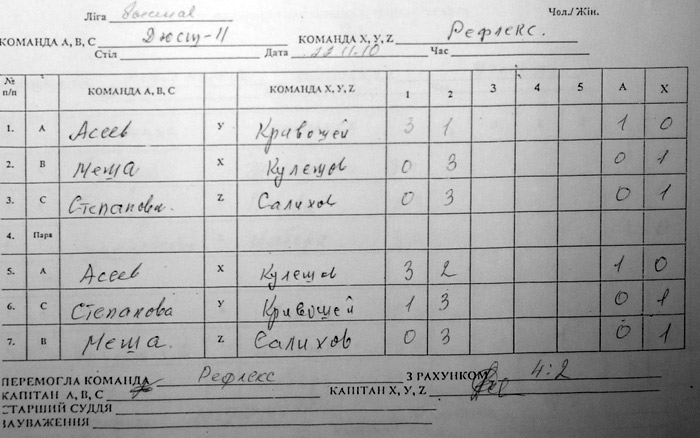 Ліга Чол./Жін.
КОМАНДА А, В, С Дюсш-11 КОМАНДА X, Y, Z Рефлекс.
Стіл Дата 22.11.10 Час
№ п/п КОМАНДА А, В, С КОМАНДА X, Y, Z 1 2 3 4 5 А X
1. А Асеев У Кривошей 3 1 1 0
2. В Меша X Кулешов 0 3 0 1
3. С Степанова. Z Салихов 0 3 0 1
4. Пара
5. А Асеев X Кулешов 3 2 1 0
6. С Степанова У Кривошей 1 3 0 1
7. В Меша. Z Салихов 0 3 0 1
ПЕРЕМОГЛА КОМАНДА Рефлекс З РАХУНКОМ 4:2
КАПІТАН А, В, С КАПІТАН X, Y, Z
СТАРШИЙ СУДДЯ
ЗАУВАЖЕННЯ